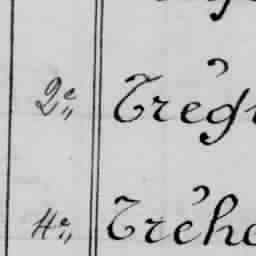 2e Trég
4e Tréh